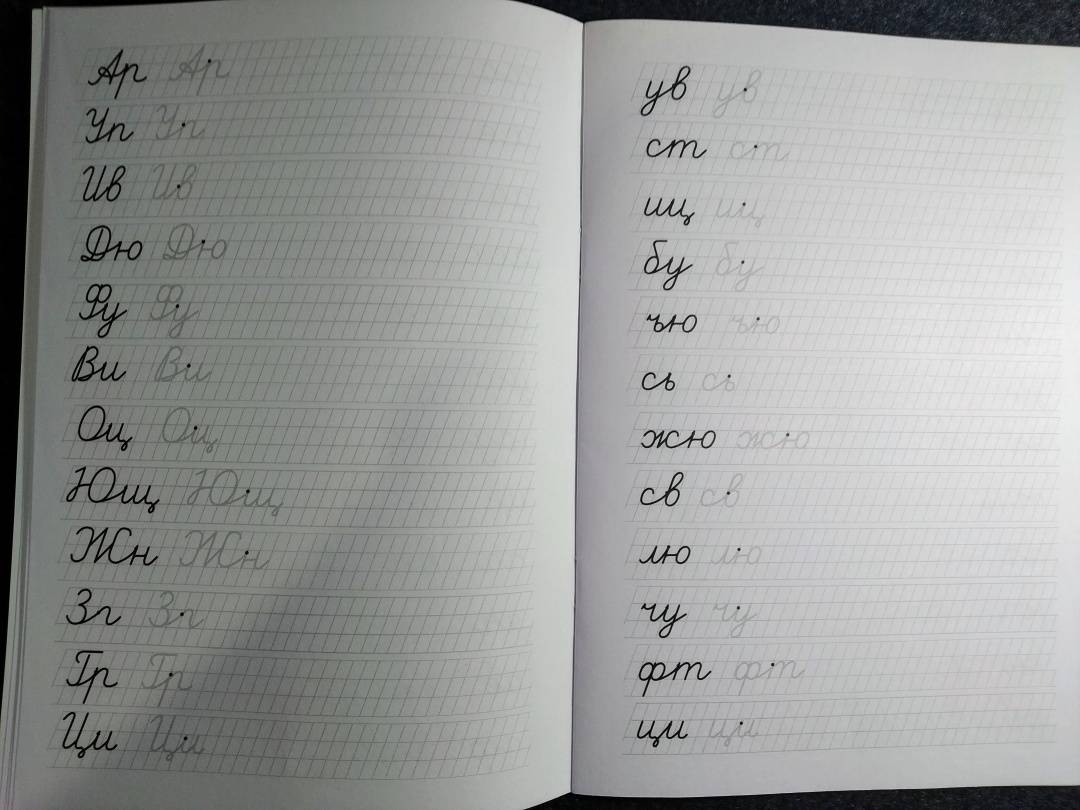 Ар Ар
Уп Уп
Ив Ив
Дю Дю
Фу Фу
Ви Ви
Оц Оц
Ющ Ющ
Жн Жн
Зг Зг
Гр Гр
Ци Ци
ув ув
ст ст
иц иц
бу бу
ъю ъю
сь сь
жю жю
св св
лю лю
чу чу
фт фт
ци ци